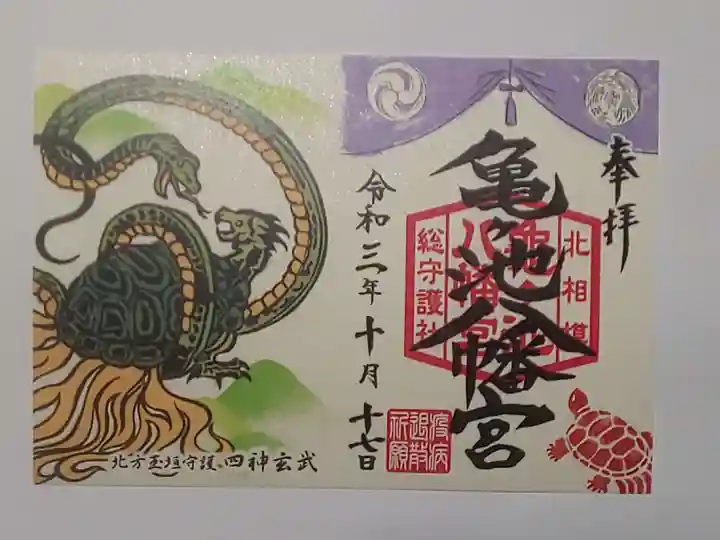 奉拝
北相模
亀ヶ池八幡宮
総守護社
亀ヶ池八幡宮
令和三年十月十七日
疫病
退散
祈願
北方玉垣守護 四神玄武